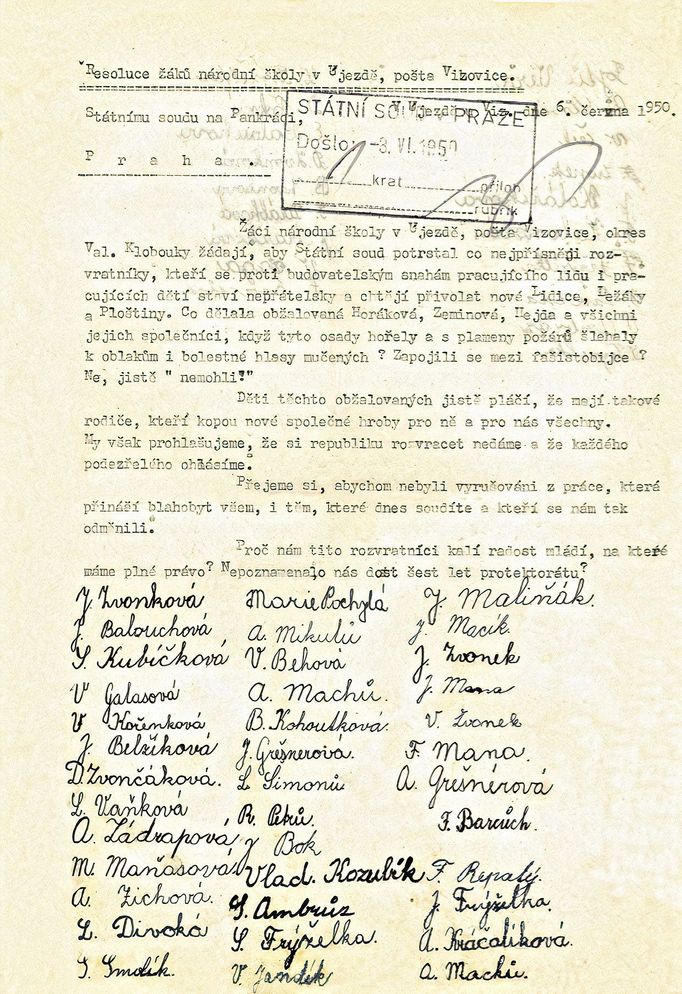 Resoluce žáků národní školy v Újezdě, pošta Vizovice.
Státnímu soudu na Pankráci,
V Újezdě u Viz. dne 6. června 1950.
P r a h a .
STÁTNÍ SOUD V PRAZE
Došlo: -8.VI.1950
krat příloh
rubrik
Žáci národní školy v Újezdě, pošta Vizovice, okres
Val. Klobouky žádají, aby Státní soud potrstal co nejpřísněji roz-
vratníky, kteří se proti budovatelským snahám pracujícího lidu i pra-
cujících dětí staví nepřátelsky a chtějí přivolat nové Lidice, Ležáky
a Ploštiny. Co dělala obžalovaná Horáková, Zeminová, Hejda a všichni
jejich společníci, když tyto osady hořely a s plameny požárů šlehaly
k oblakům i bolestné hlasy mučených ? Zapojili se mezi fašistobijce ?
Ne, jistě " nemohli!"
Děti těchto obžalovaných jistě pláčí, že mají takové
rodiče, kteří kopou nové společné hroby pro ně a pro nás všechny.
My však prohlašujeme, že si republiku rozvracet nedáme a že každého
podezřelého ohlásíme.
Přejeme si, abychom nebyli vyrušováni z práce, která
přináší blahobyt všem, i těm, které dnes soudíte a kteří se nám tak
odměnili.
Proč nám tito rozvratníci kalí radost mládí, na které
máme plné právo? Nepoznamenalo nás dost šest let protektorátu?
J. Zvonková Marie Pochylá J. Maliňák.
J. Balouchová A. Mikulů J. Macík.
S. Kubíčková V. Behová J. Zvonek
V Galasová A. Machů. J. Mana
V Kořenková B. Kohoutková. V. Zvonek
J. Belžíková J. Grešnerová. F. Mana.
D. Zvončáková. L. Simonů A. Grešnérová
L. Vaňková R. Petrů. F. Barcůch.
A. Zádrapová J Bok
M. Maňasová Vlad. Kozubík F. Repatý.
A. Zichová. S. Ambrůz J. Frýželka.
L. Divoká S. Frýželka. A. Kráčalíková.
S. Smolík. V. Jandík A. Machů.